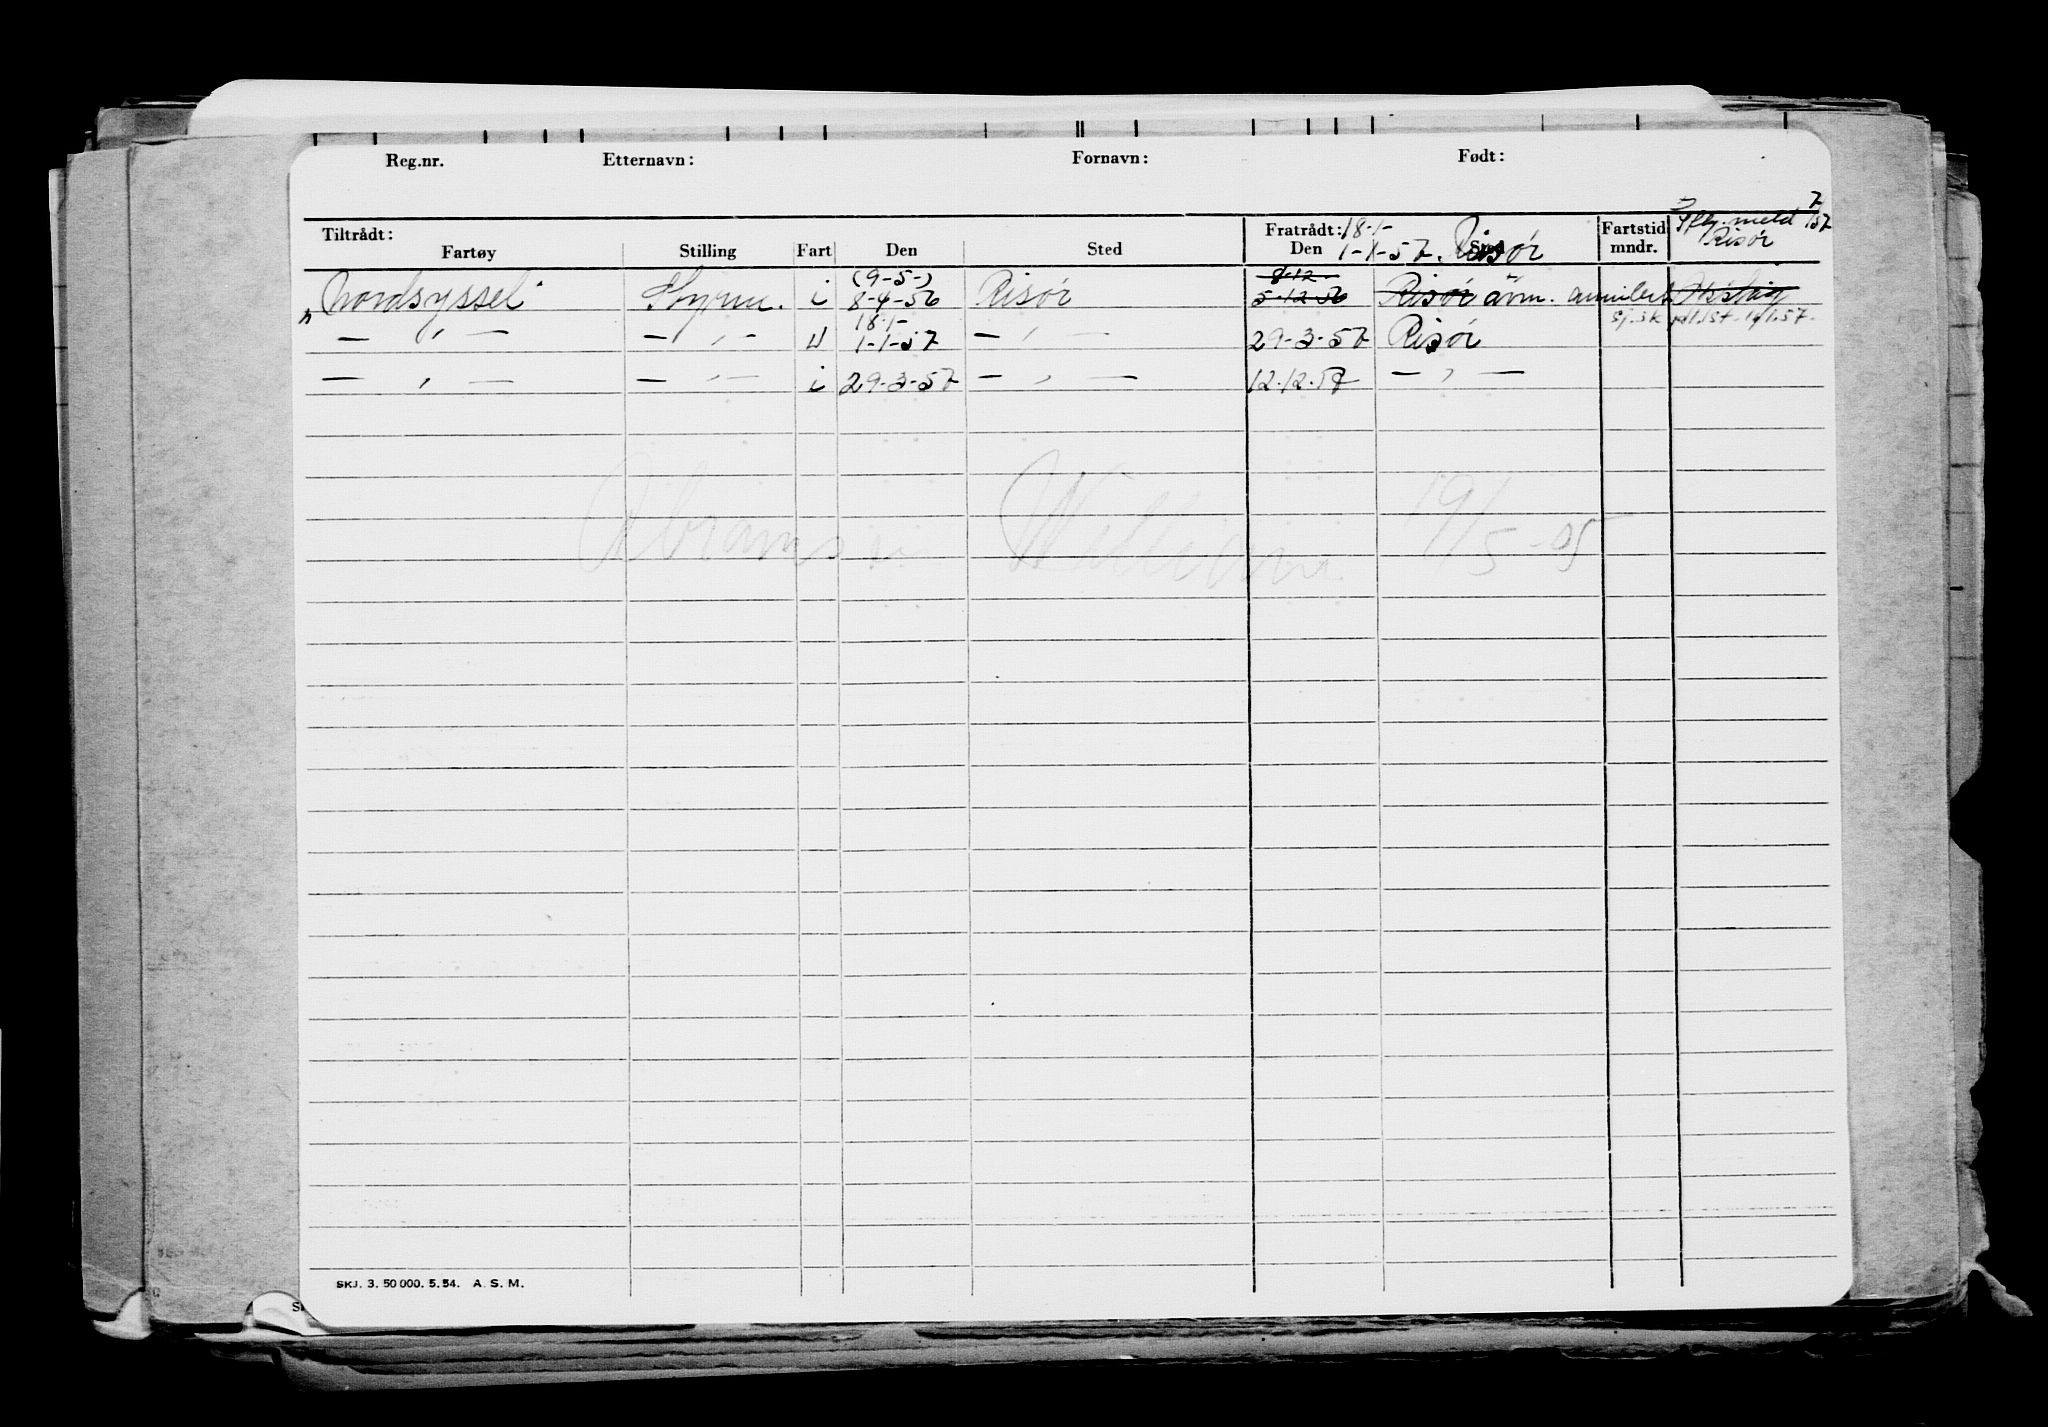 Reg.nr. Etternavn: Fornavn: Født:
7/57
meld
Risør
Tiltrådt: Fratrådt: 18-1- Fartstid
Fartøy Stilling Fart Den Sted Den 1-1-57. Risør Sted mndr.
(9-5-) 8-12
"Nordsyssel" Styrm. i 8-4-56 Risør 5-12-56 Risør avm. annulert
18-1-
— " — — " — U 1-1-57 — " — 29-3-57 Risør
— " — — " — i 29-3-57 — " — 12.12.57 — " —
Abramsen William 19/5-05
SKJ. 3. 50 000. 5. 54. A. S. M.